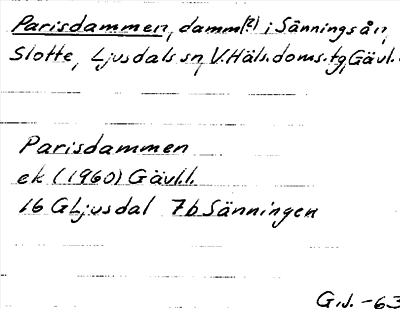 Parisdammen, damm(e) i Sänningsån,
Slotte, Ljusdals sn, V.Häls.doms.tg, Gävl.
Parisdammen
ek (1960) Gävl.l.
16 G Ljusdal 7b Sänningen
G.J. -63